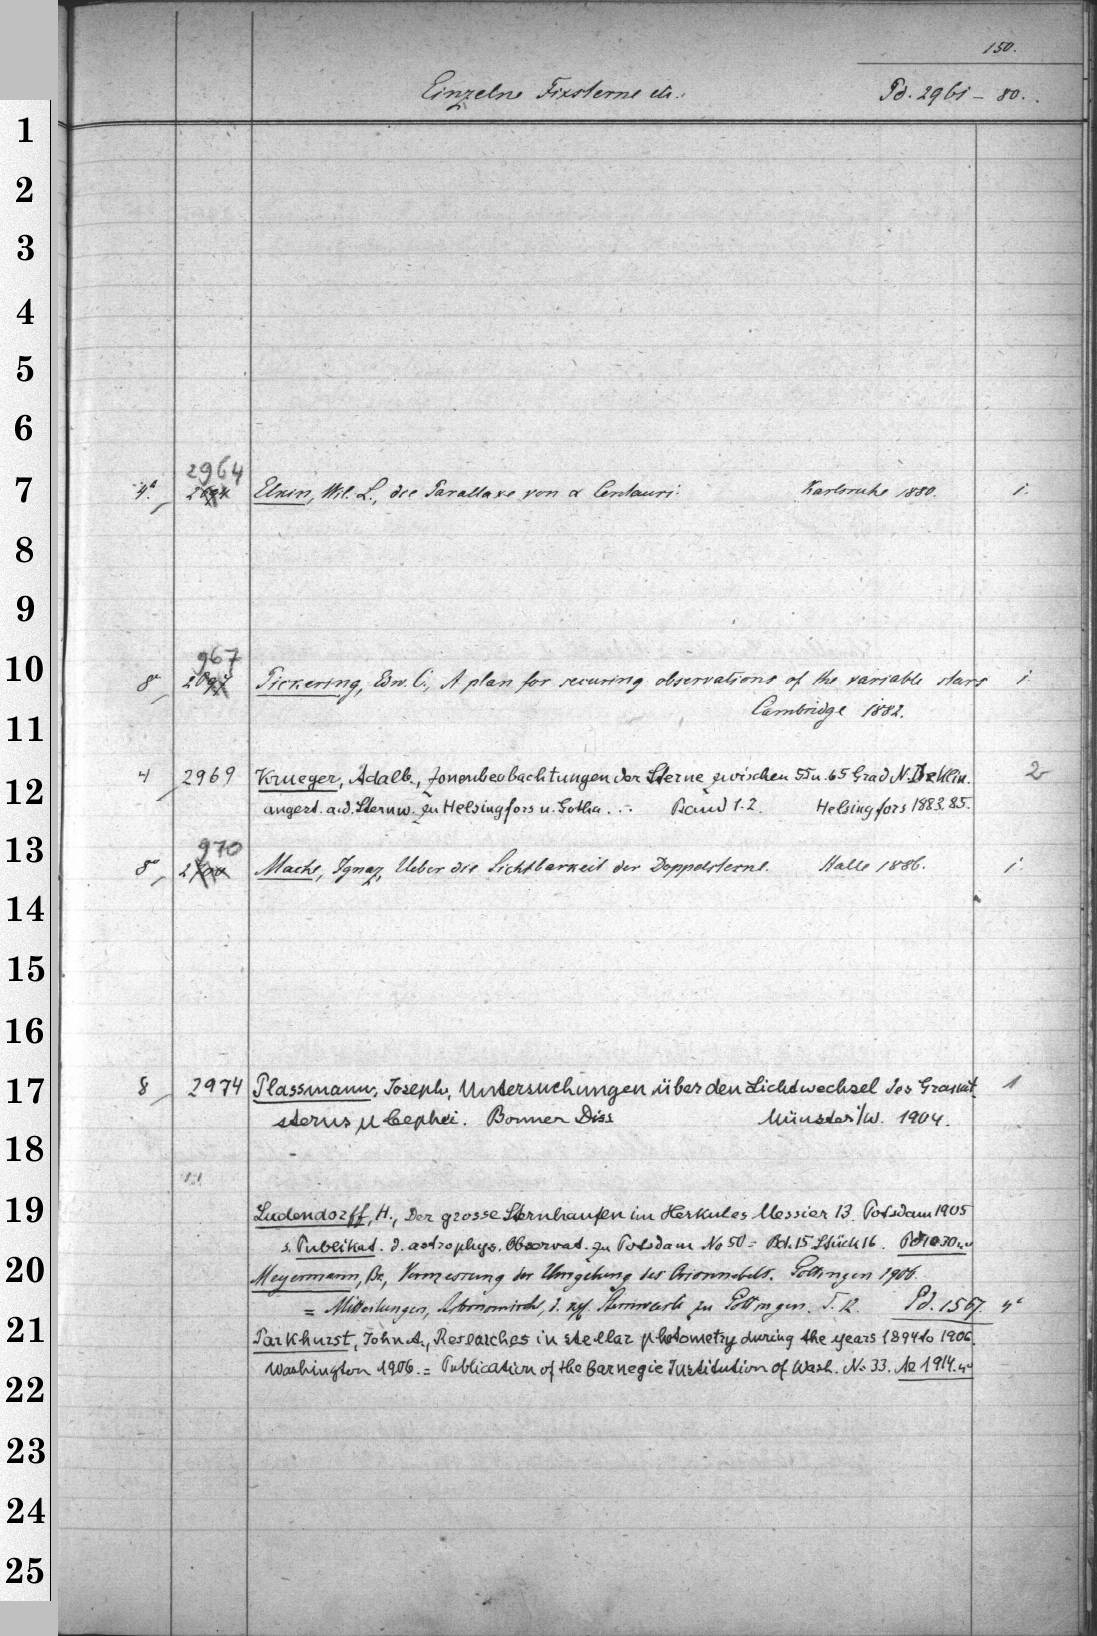 150.
Einzelne Fixsterne etc. Pd. 2961 - 80.
1
2
3
4
5
6
2964
7 4° Elkin, Wil. L., die Parallaxe von α Centauri. Karlsruhe 1880. 1.
8
9
967
10 8° 2697 Pickering, Edw. C., A plan for securing observations of the variable stars 1.
11 Cambridge 1882.
4 2969 Krueger, Adalb., Zonenbeobachtungen der Sterne zwischen 55 u. 65 Grad N. Deklin. 2
12 angest. a. d. Sternw. zu Helsingfors u. Gotha... Band 1.2. Helsingfors 1883.85.
13 970
8° 2700 Mache, Ignaz, Ueber die Sichtbarkeit der Doppelsterne. Halle 1886. 1.
14
15
16
17 8 2974 Plassmann, Joseph, Untersuchungen über den Lichtwechsel des Granat 1
sterns μ Cephei. Bonner Diss Münster i/W. 1904.
18
19 Ludendorff, H., Der grosse Sternhaufen im Herkules Messier 13. Potsdam 1905
s. Publikat. d. astrophys. Observat. zu Potsdam No 50 = Bd. 15 Stück 16.
20 Meyermann, Br., Vermessung der Umgebung des Orionnebels. Göttingen 1906.
= Mitteilungen, Astronomische, d. kgl. Sternwarte zu Göttingen. T. 12. Pd. 1567. 4°
21 Parkhurst, John A., Researches in stellar photometry during the years 1894 to 1906.
Washington 1906. = Publication of the Carnegie Institution of Wash. No 33. Ae 1914. 4°
22
23
24
25